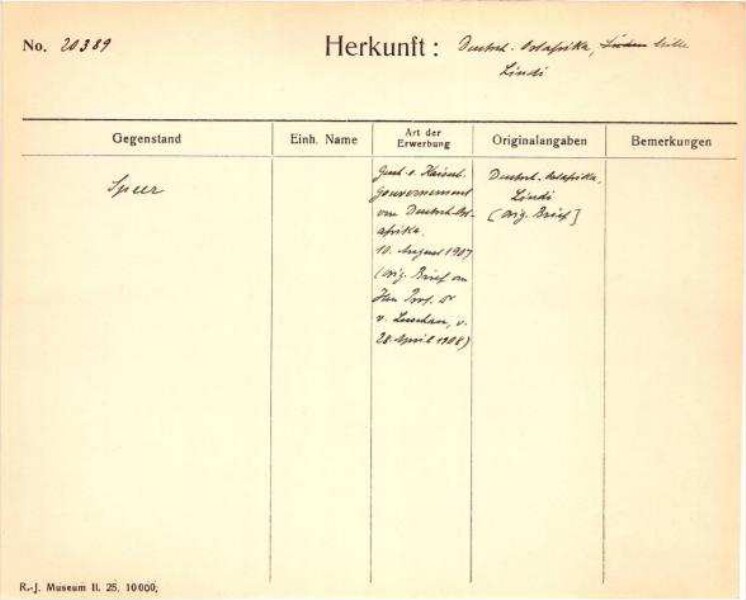 No. 20389
Herkunft: Deutsch-Ostafrika,
Lindi
Gegenstand
Einh. Name
Art der
Erwerbung
Originalangaben
Bemerkungen
Speer
v. Kaiserl.
Gouvernement
von Deutsch-Ost-
afrika.
10. August 1907
(Orig. Brief an
Herrn Prof. Dr
v. Luschan, v.
28. April 1908)
Deutsch-Ostafrika,
Lindi
(Orig. Brief]
R.-J. Museum II. 25. 10000,